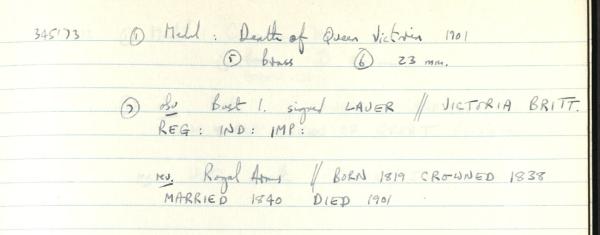 345173 ① Medal : Death of Queen Victoria 1901
⑤ brass ⑥ 23 mm.
⑦ obv Bust l. signed LAUER // VICTORIA BRITT.
REG : IND : IMP :
rev. Royal Arms // BORN 1819 CROWNED 1838
MARRIED 1840 DIED 1901